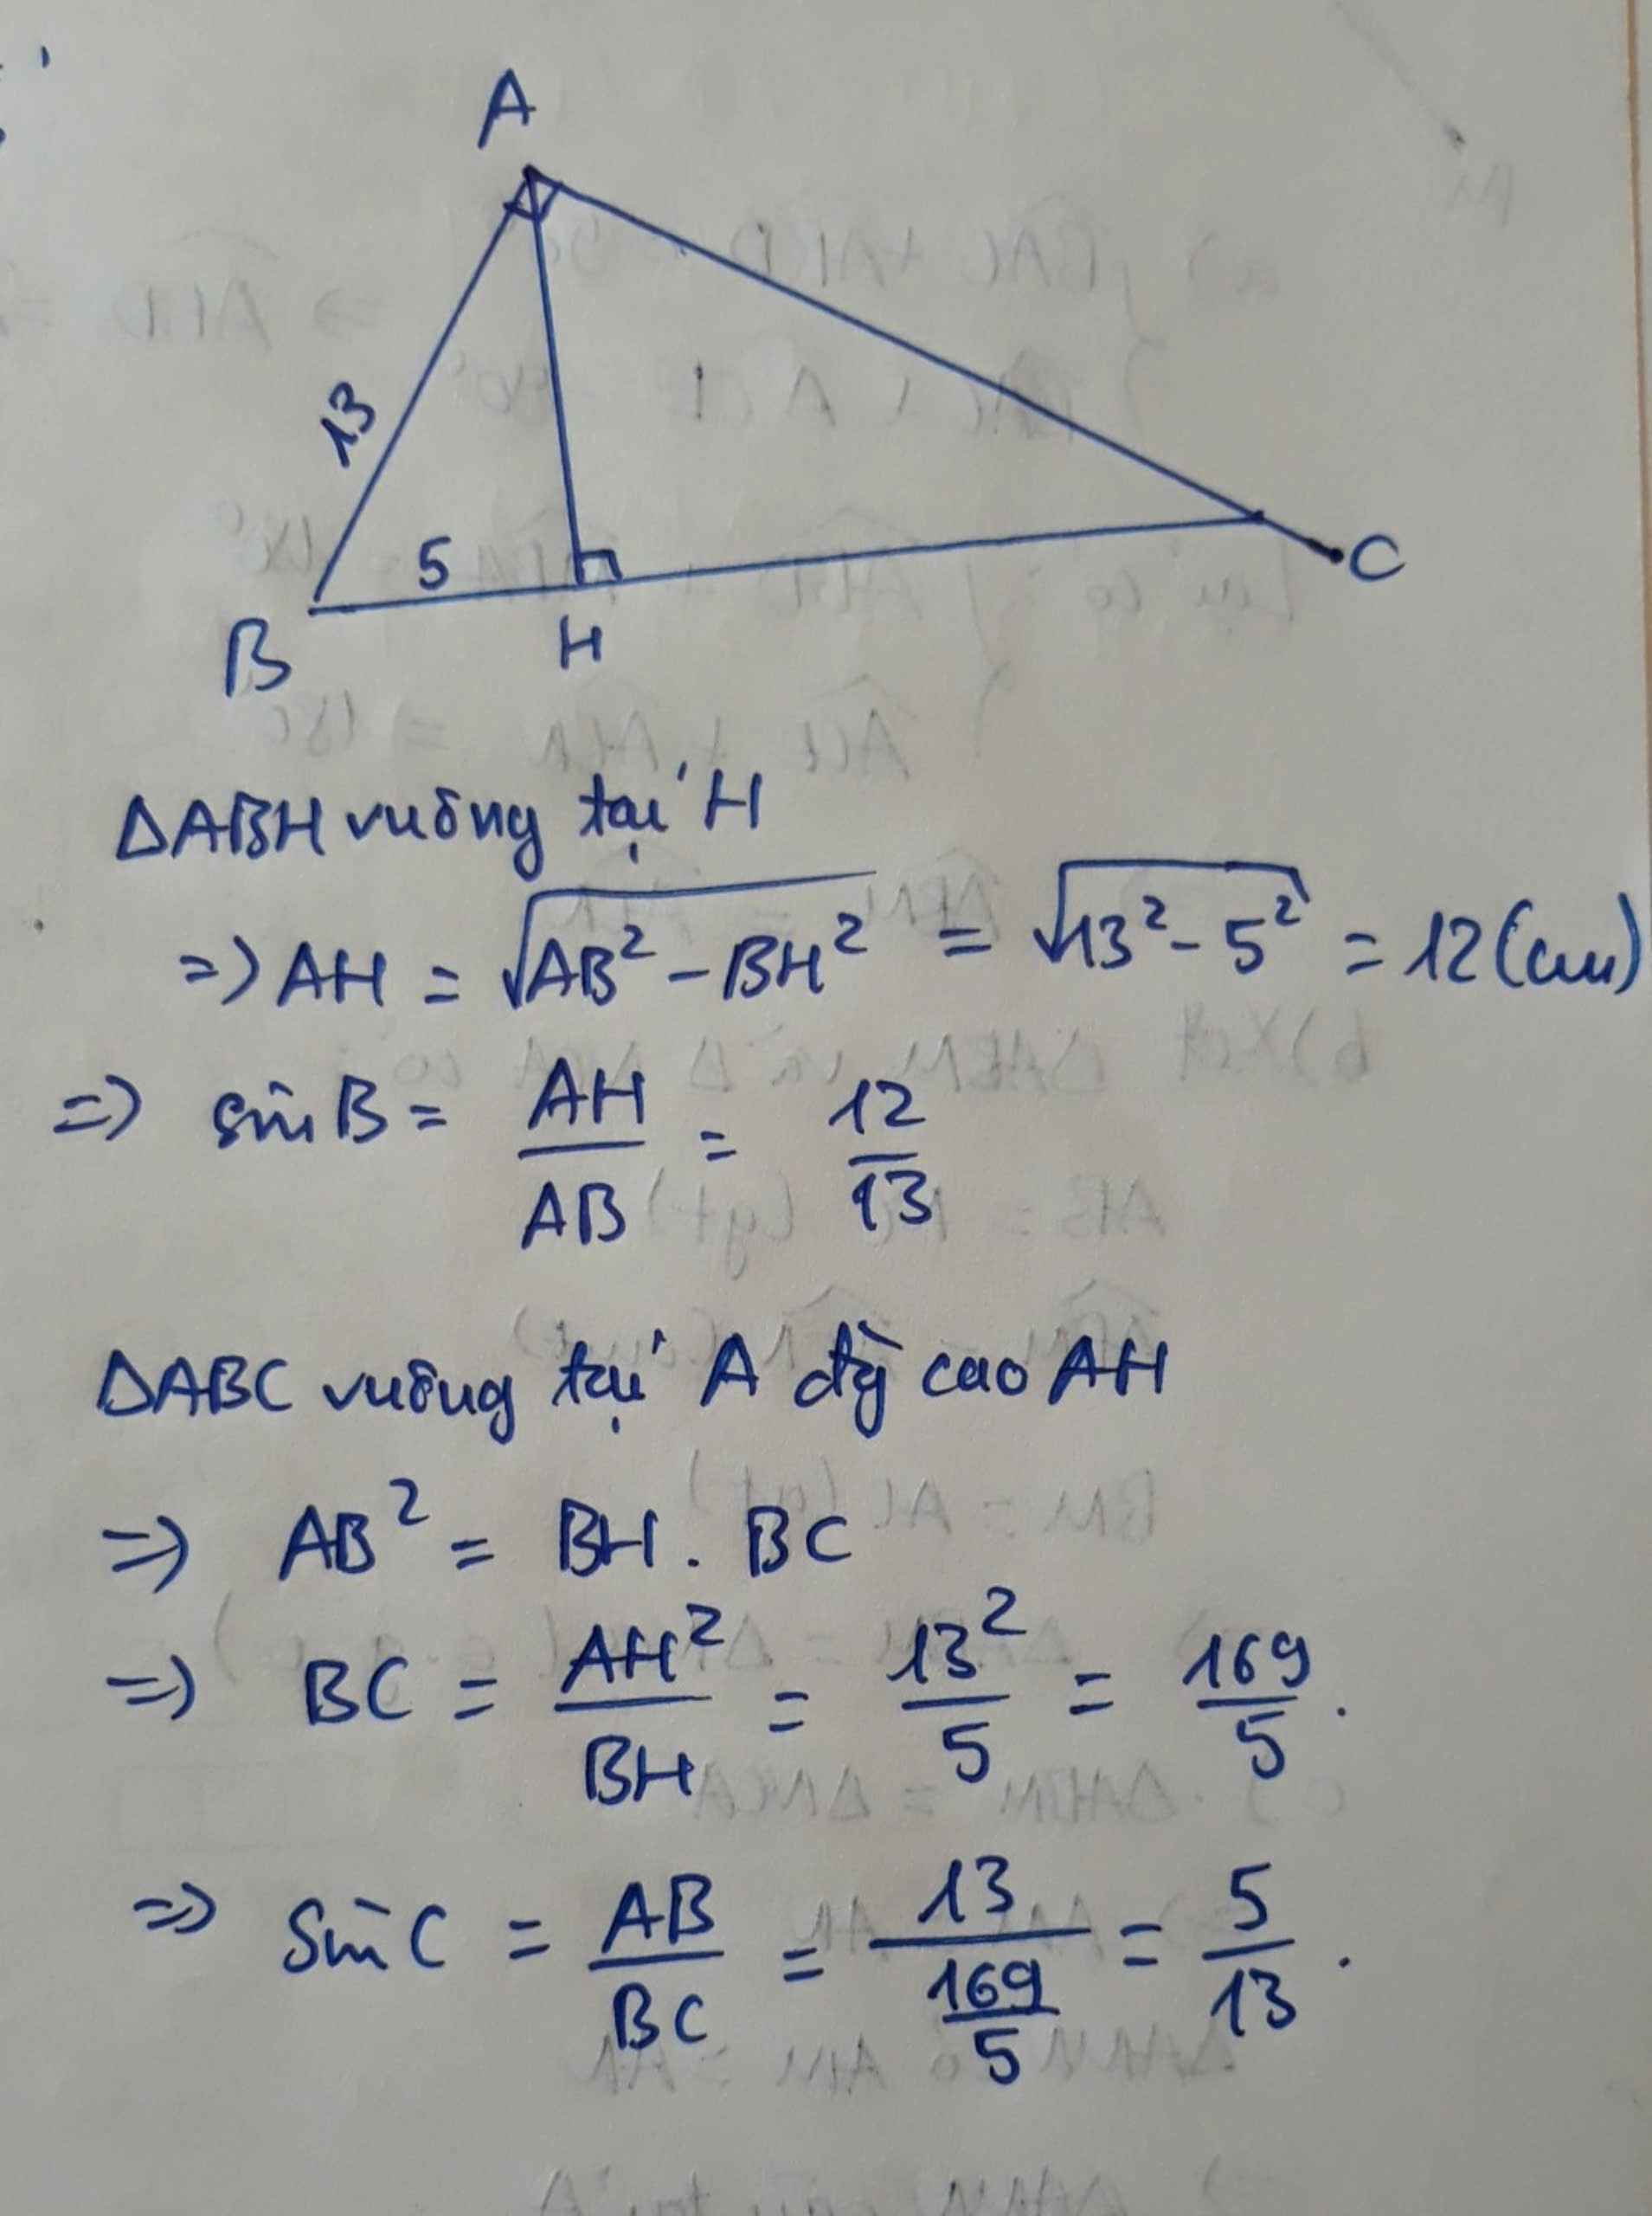 A
13
5
B
H
C
ΔABH vuông tại H
=> AH = √(AB² - BH²) = √(13² - 5²) = 12 (cm)
=> sin B = AH/AB = 12/13
ΔABC vuông tại A đg cao AH
=> AB² = BH . BC
=> BC = AH²/BH = 13²/5 = 169/5 .
=> Sin C = AB/BC = 13/(169/5) = 5/13 .